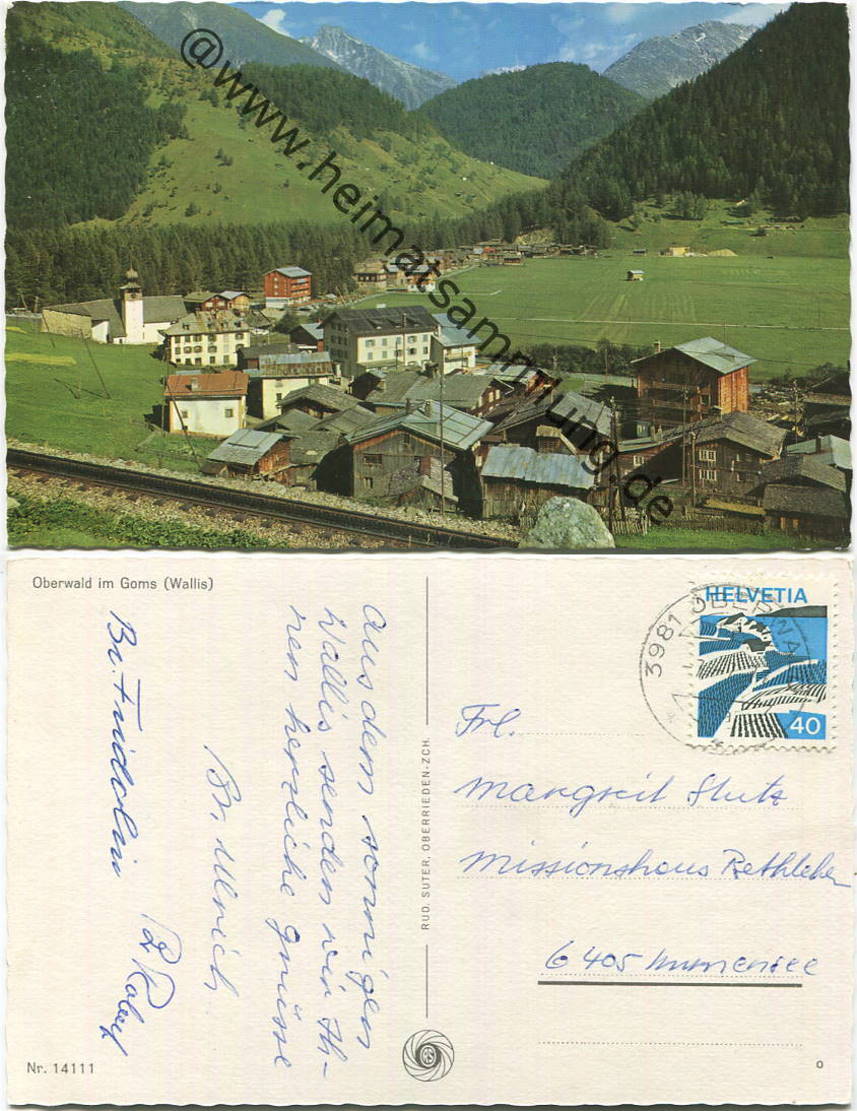 @www.heimatsammlung.de
Oberwald im Goms (Wallis)
Aus dem sonnigen
Wallis senden wir Ih-
nen herzliche Grüsse
Br. Ulrich
Br. Fridolin
Nr. 14111
RUD. SUTER, OBERRIEDEN-ZCH.
HELVETIA
40
3981 OBERWA
Frl.
Margreit Stutz
Missionshaus Bethlehem
6405 Immensee